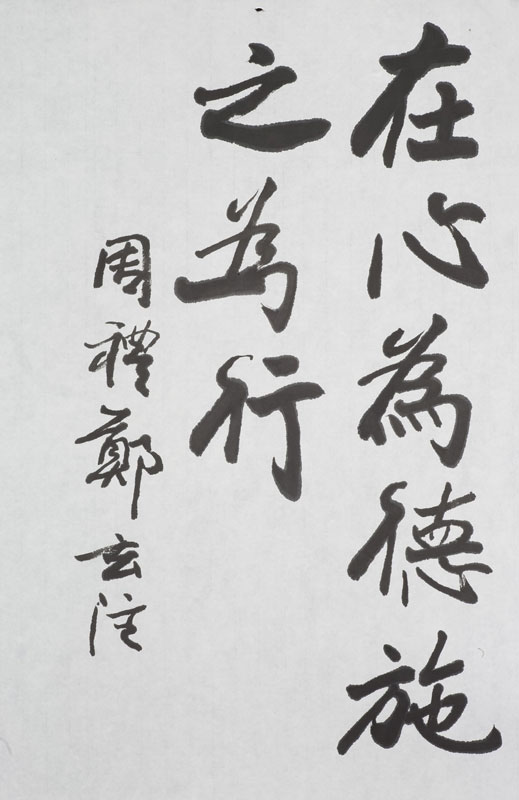 在心為德施
之為行
周禮鄭玄注